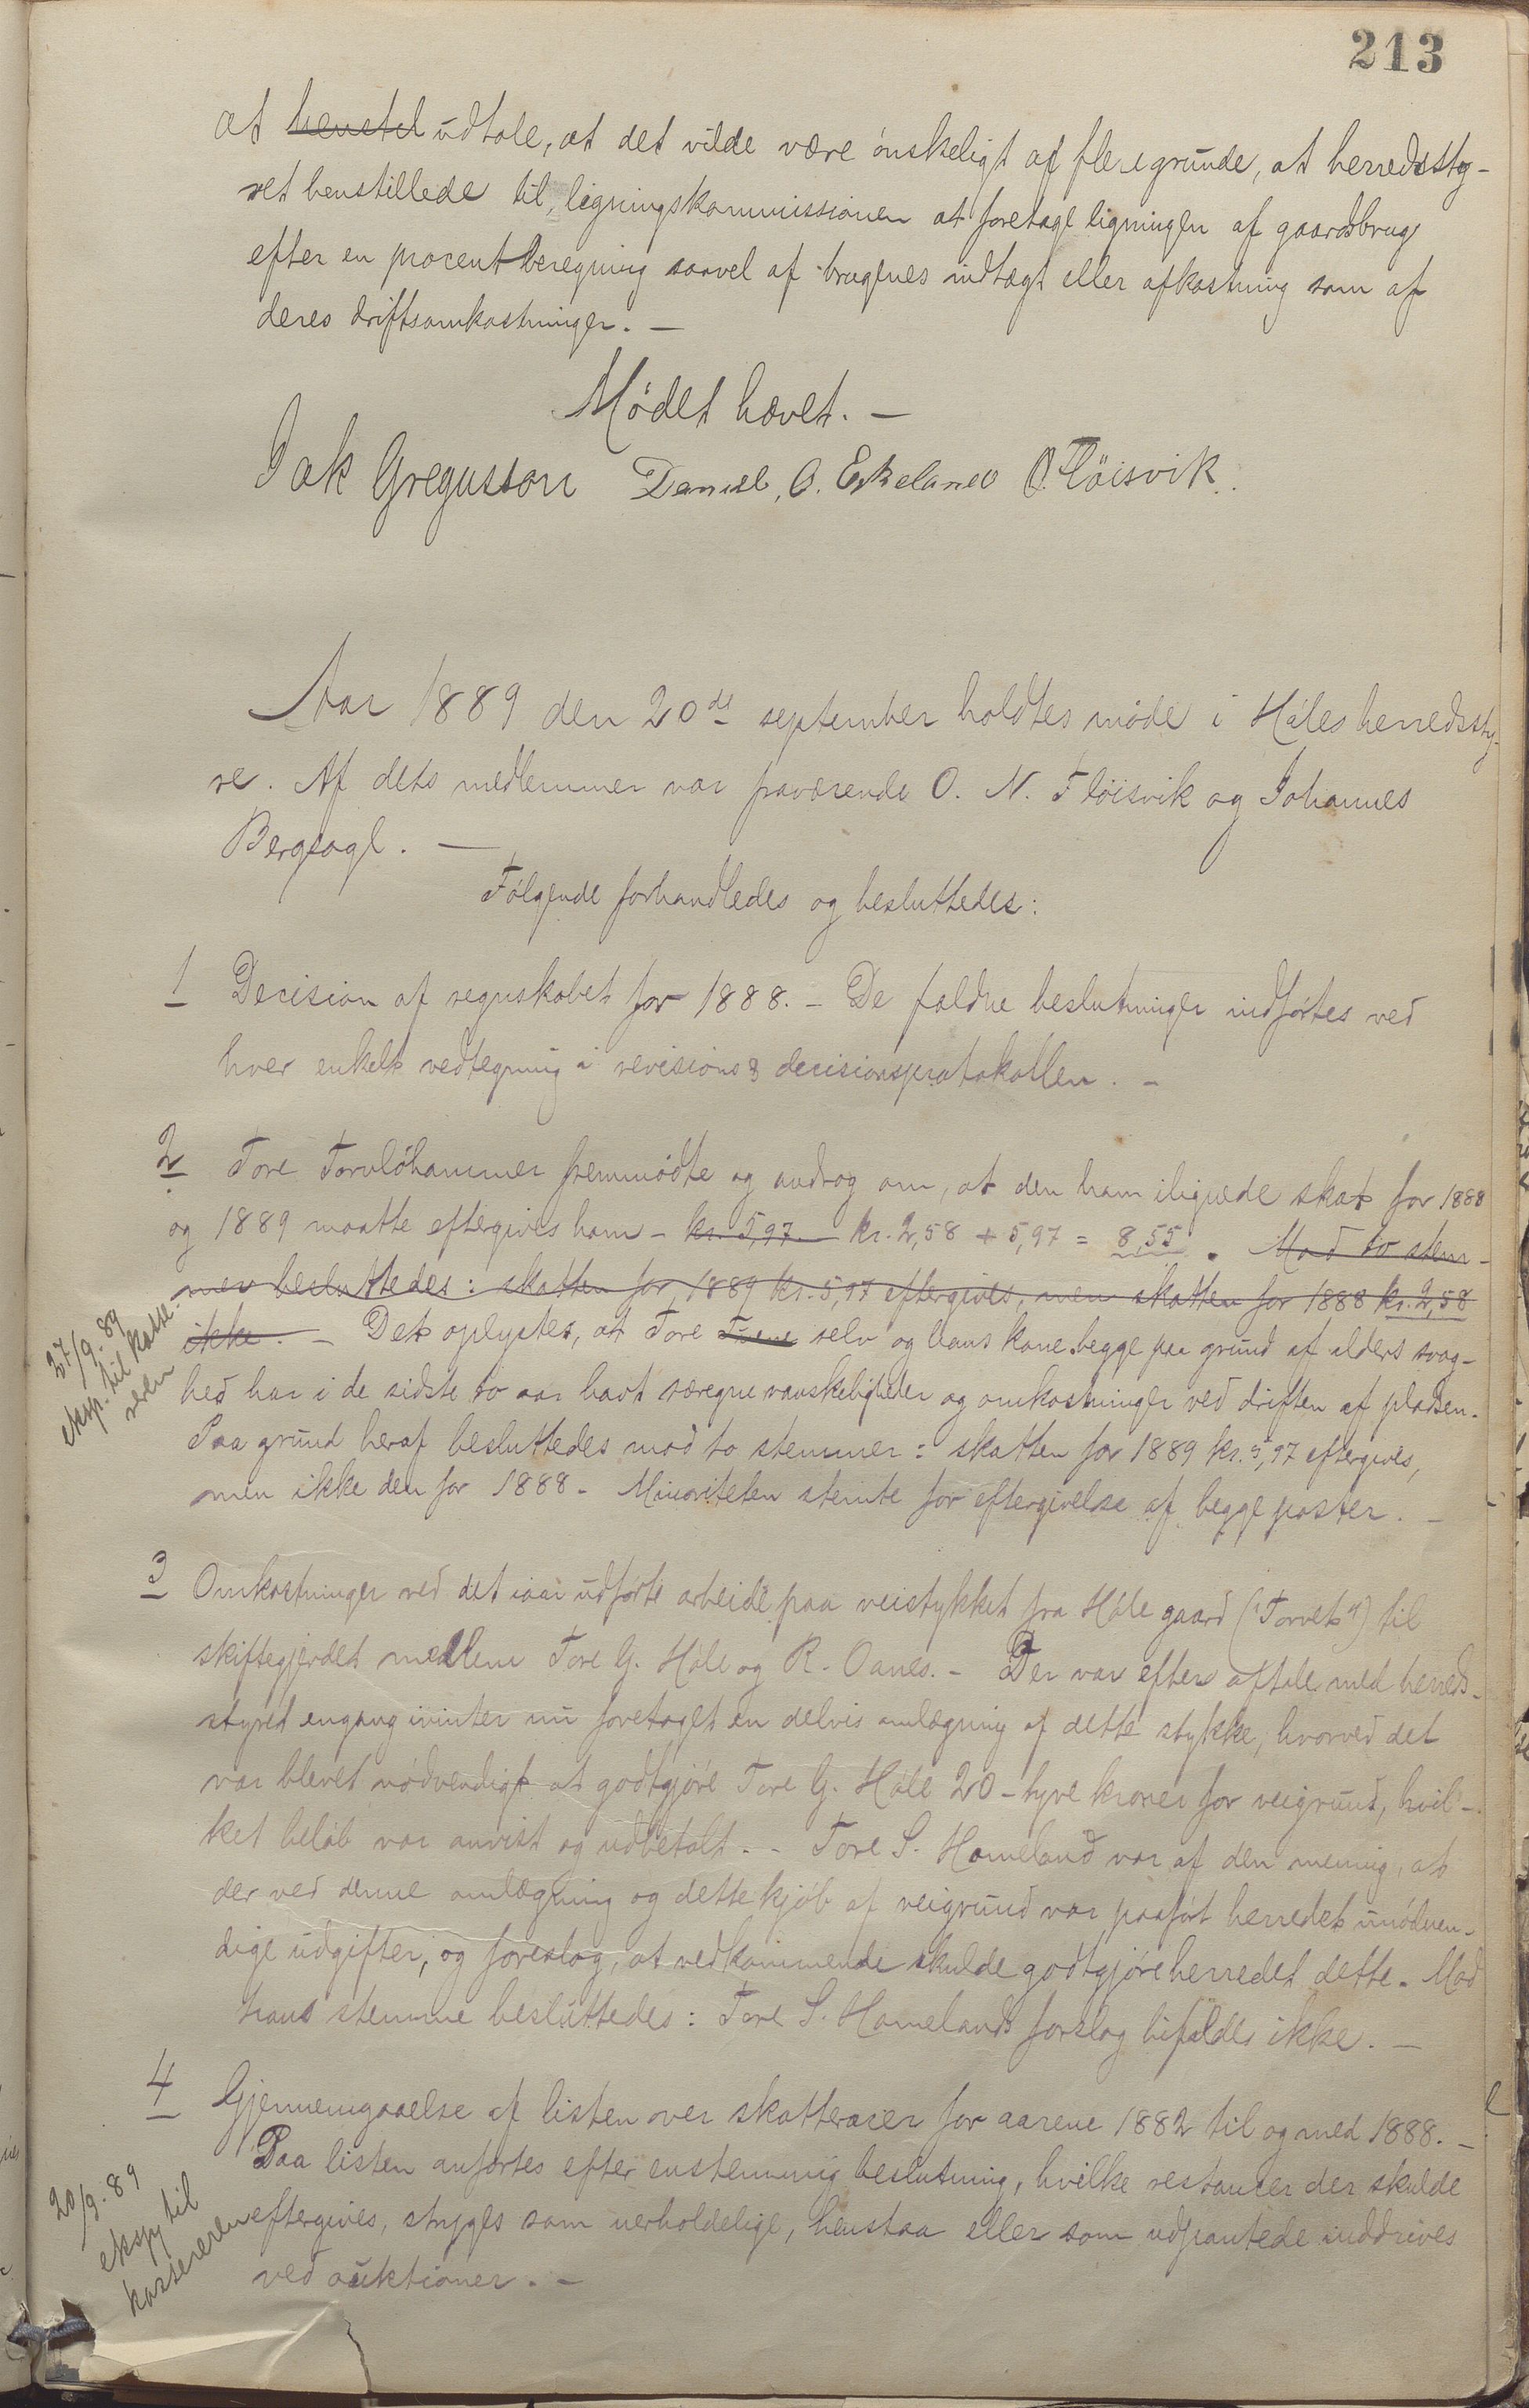 213
at henstel udtale, at det vilde være ønskeligt af flere grunde, at herredssty-
ret henstillede til ligningskommissionen at foretage ligningen af gaardsbrug
efter en procentberegning saavel af brugenes indtægt eller afkastning som af
deres driftsomkostninger. —
Mødet hævet. —
Jak Gregusson Daniel O. Eskeland O. Fløisvik.
Aar 1889 den 20de september holdtes møde i Høles herredssty-
re. Af dets medlemmer var fraværende O. N. Fløisvik og Johannes
Bergsagl. —
Følgende forhandledes og besluttedes:
1 Decision af regnskabet for 1888. — De faldne beslutninger indførtes ved
hver enkelt vedtegning i revisions & decisionsprotokollen. —
2 Tore Torvløhammer fremmødte og androg om, at den ham ilignede skat for 1888
og 1889 maatte eftergives ham — kr. 5,97. kr. 2,58 + 5,97 = 8,55. Mod to stem-
mer besluttedes: skatten for 1889 kr. 5,97 eftergives, men skatten for 1888 kr. 2,58
ikke. — Det oplystes, at Tore selv og hans kone begge paa grund af alders svag-
hed har i de sidste to aar havt særegne vanskeligheder og omkostninger ved driften af pladsen.
Paa grund heraf besluttedes mod to stemmer: skatten for 1889 kr. 5,97 eftergives,
men ikke den for 1888. Minoriteten stemte for eftergivelse af begge poster. —
27/9. 89
eksp. til kasse-
reren
3 Omkostninger ved det iaar udførte arbeide paa veistykket fra Høle gaard ("Torvet") til
skiftegjerdet mellem Tore G. Høle og R. Oanes. — Der var efter aftale med herreds-
styret engang ivinter nu foretaget en delvis omlægning af dette stykke, hvorved det
var blevet nødvendigt at godtgjøre Tore G. Høle 20 — tyve kroner for veigrund, hvil-
ket beløb var anvist og udbetalt. — Tore S. Hameland var af den mening, at
der ved denne omlægning og dette kjøb af veigrund var paaført herredet unødven-
dige udgifter, og foreslog, at vedkommende skulde godtgjøre herredet dette. Mod
hans stemme besluttedes: Tore S. Hamelands forslag bifaldes ikke. —
4 Gjennemgaaelse af listen over skatterester for aarene 1882 til og med 1888. —
Paa listen anførtes efter enstemmig beslutning, hvilke restancer der skulde
eftergives, stryges som uerholdelige, henstaa eller som udpantede inddrives
ved auktioner. —
20/9. 89
eksp til
kassereren